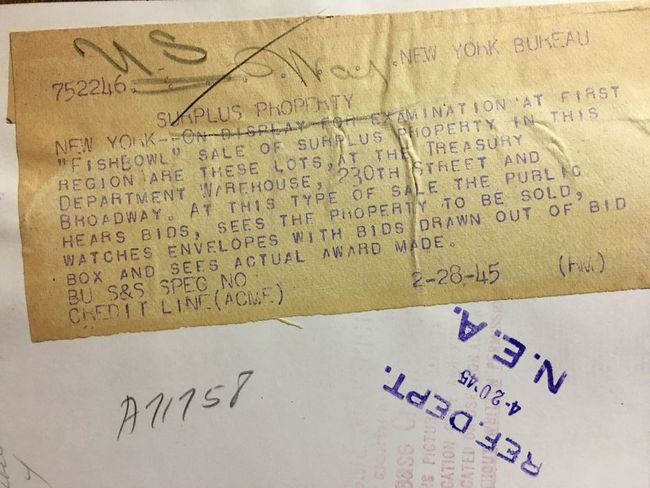 US
752246. NEW YORK BUREAU
SURPLUS PROPERTY
NEW YORK--ON DISPLAY FOR EXAMINATION AT FIRST
"FISHBOWL" SALE OF SURPLUS PROPERTY IN THIS
REGION ARE THESE LOTS, AT THE TREASURY
DEPARTMENT WAREHOUSE, 230TH STREET AND
BROADWAY. AT THIS TYPE OF SALE THE PUBLIC
HEARS BIDS, SEES THE PROPERTY TO BE SOLD,
WATCHES ENVELOPES WITH BIDS DRAWN OUT OF BID
BOX AND SEES ACTUAL AWARD MADE.
BU S&S SPEC NO
CREDIT LINE (ACME) 2-28-45 (H.W.)
A71758
REF. DEPT.
4-20-45
N.E.A.